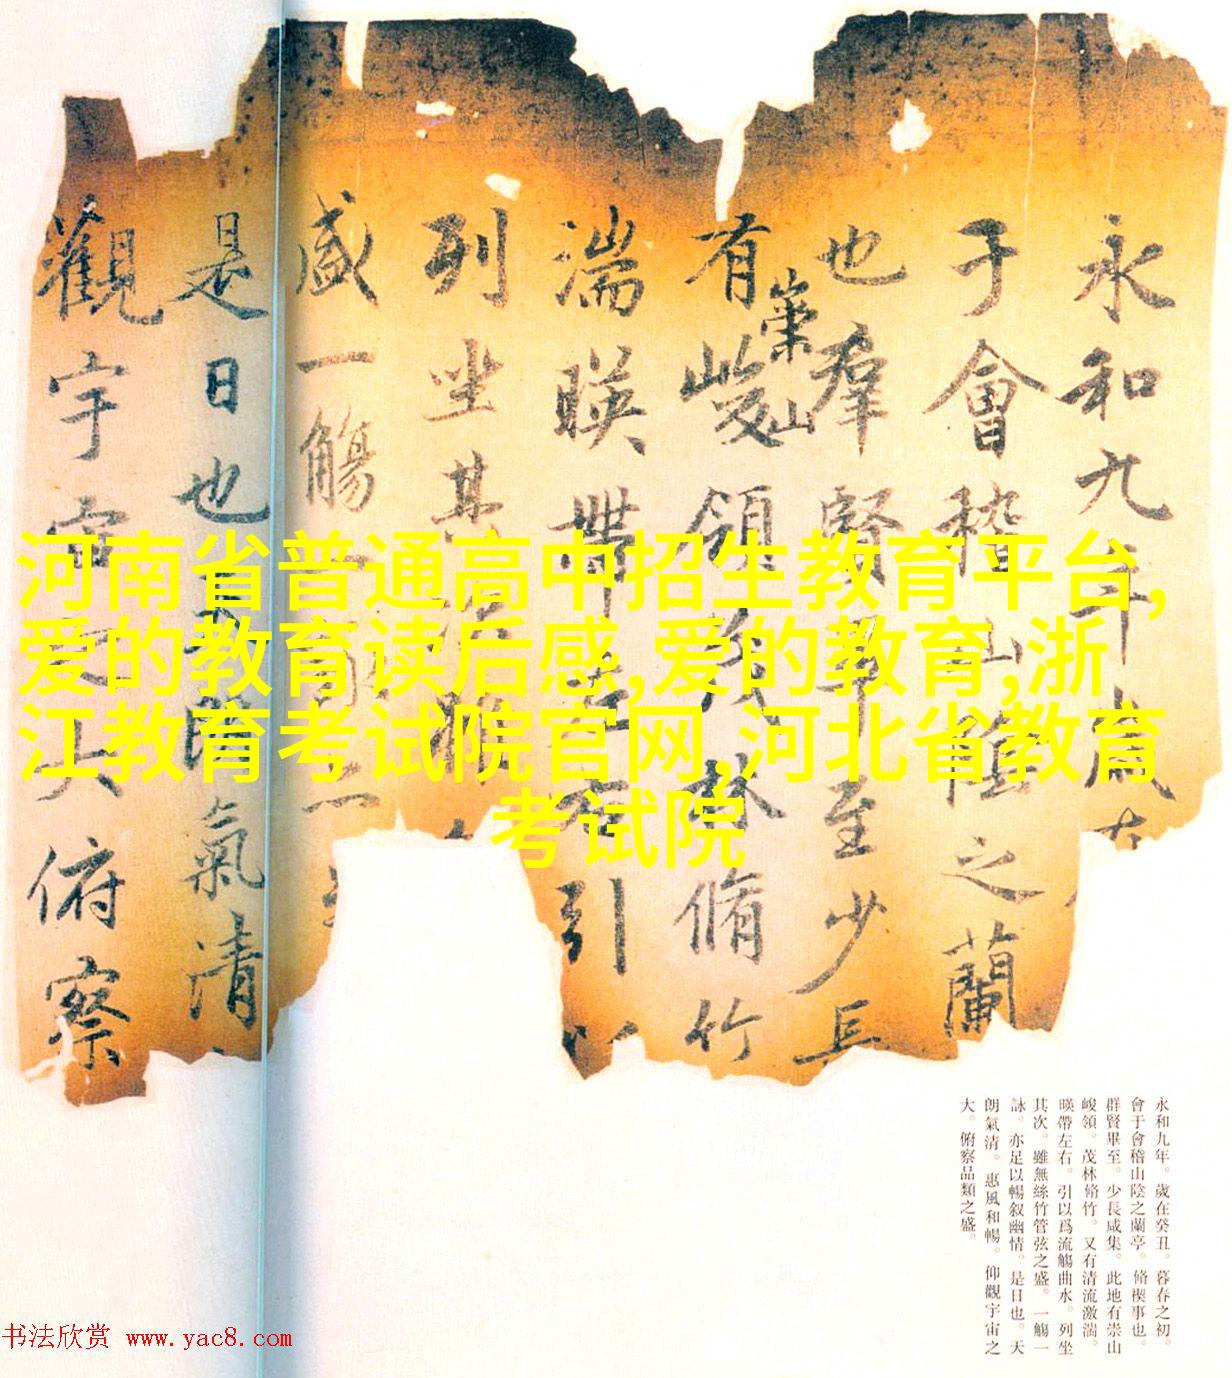 永和九年歲在
于會稽山陰之蘭
也羣賢畢至少長
有崇山峻領茂林脩竹
湍暎帶左右引以
列坐其次雖
盛一觴一詠亦
是日也天朗氣清
觀宇宙之大俯察
河南省普通高中招生教育平台,
爱的教育读后感,爱的教育,浙
江教育考试院官网,河北省教育
考试院
永和九年。歲在癸丑。暮春之初。
會于會稽山陰之蘭亭。脩禊事也。
群賢畢至。少長咸集。此地有崇山
峻領。茂林脩竹。又有清流激湍。
暎帶左右。引以爲流觴曲水。列坐
其次。雖無絲竹管弦之盛。一觴一
詠。亦足以暢叙幽情。是日也。天
朗氣清。惠風和暢。仰觀宇宙之
大。俯察品類之盛。
书法欣赏 www.yac8.com